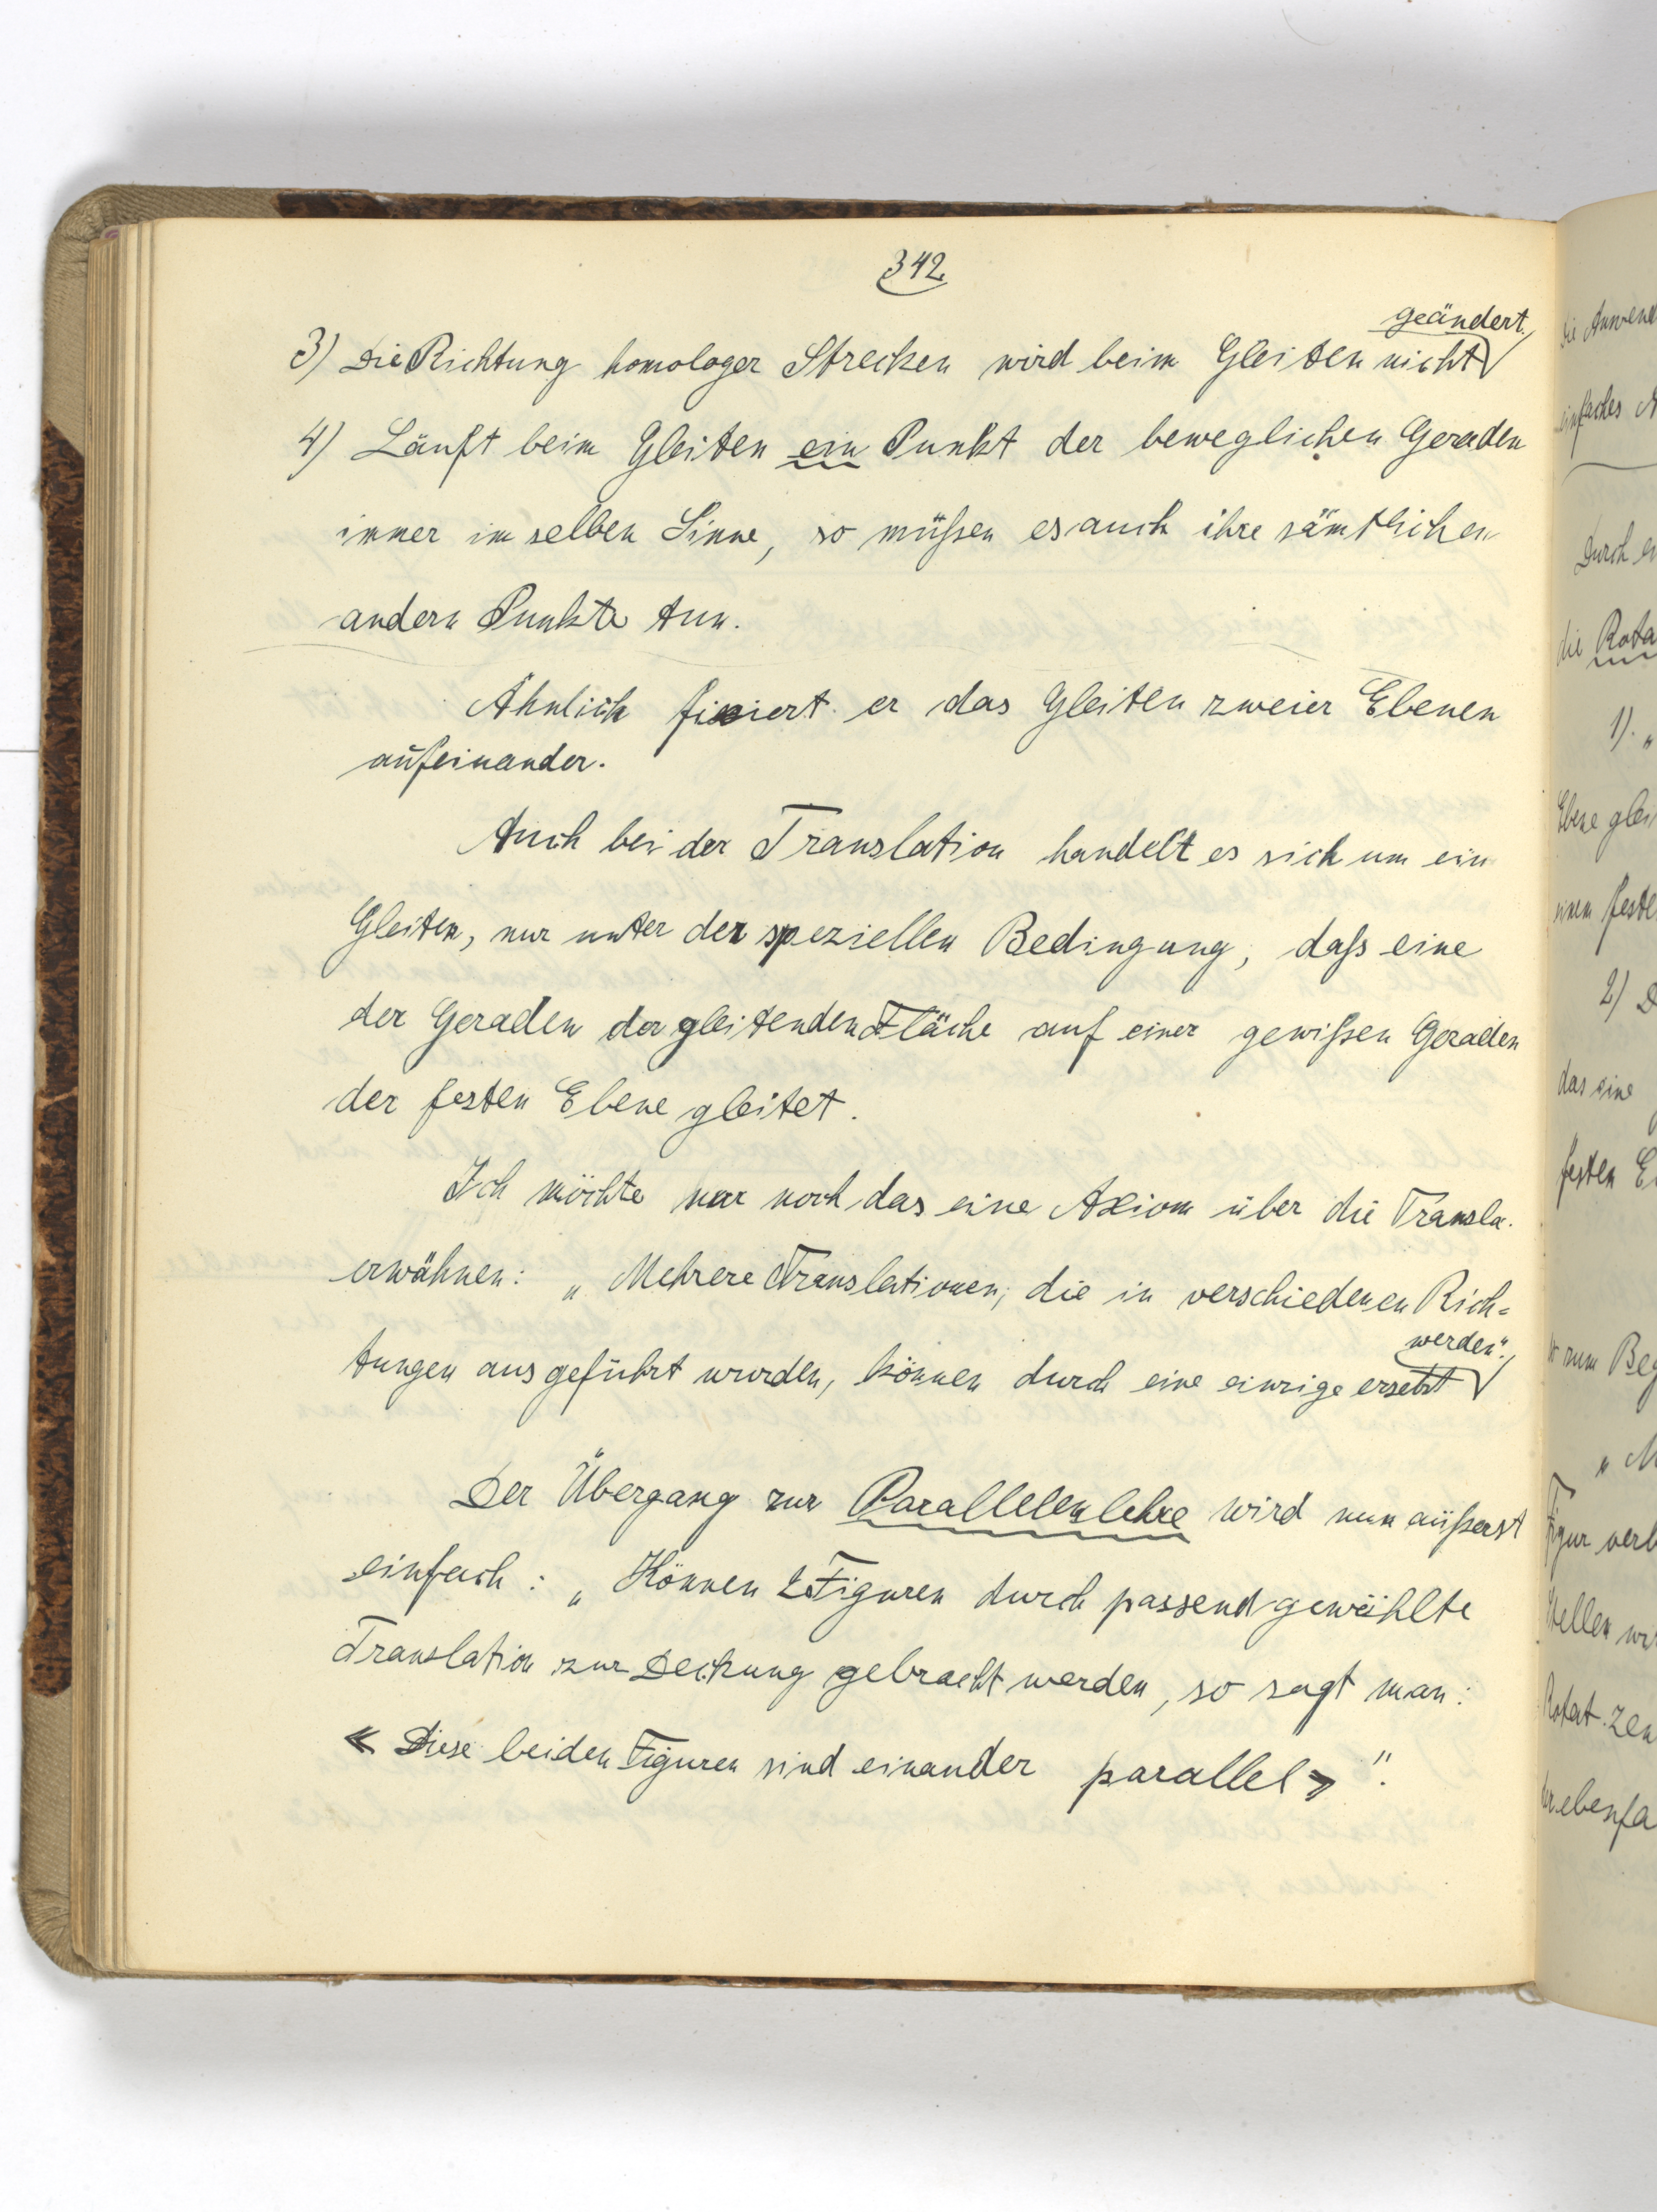 342.
3) Die Richtung homologer Strecken wird beim Gleiten nicht geändert.
4) Läuft beim Gleiten ein Punkt der beweglichen Geraden
immer im selben Sinne, so müßen es auch ihre sämtlichen
andern Punkte tun.
Ähnlich fixiert er das Gleiten zweier Ebenen
aufeinander.
Auch bei der Translation handelt es sich um ein
Gleiten, nur unter der speziellen Bedingung, daß eine
der Geraden der gleitenden Fläche auf einer gewißen Geraden
der festen Ebene gleitet.
Ich möchte nur noch das eine Axiom über die Transla.
erwähnen: „Mehrere Translationen, die in verschiedenen Rich=
tungen ausgeführt wurden, können durch eine einzige ersetzt werden".
Der Übergang zur Parallelenlehre wird nun äußerst
einfach: „Können 2 Figuren durch passend gewählte
Translation zur Deckung gebracht werden, so sagt man:
« Diese beiden Figuren sind einander parallel »".
die
einfaches
Durch
die
1). „
Ebene
einen
2)
das eine
festen
zum
„
Figur
Rotat.